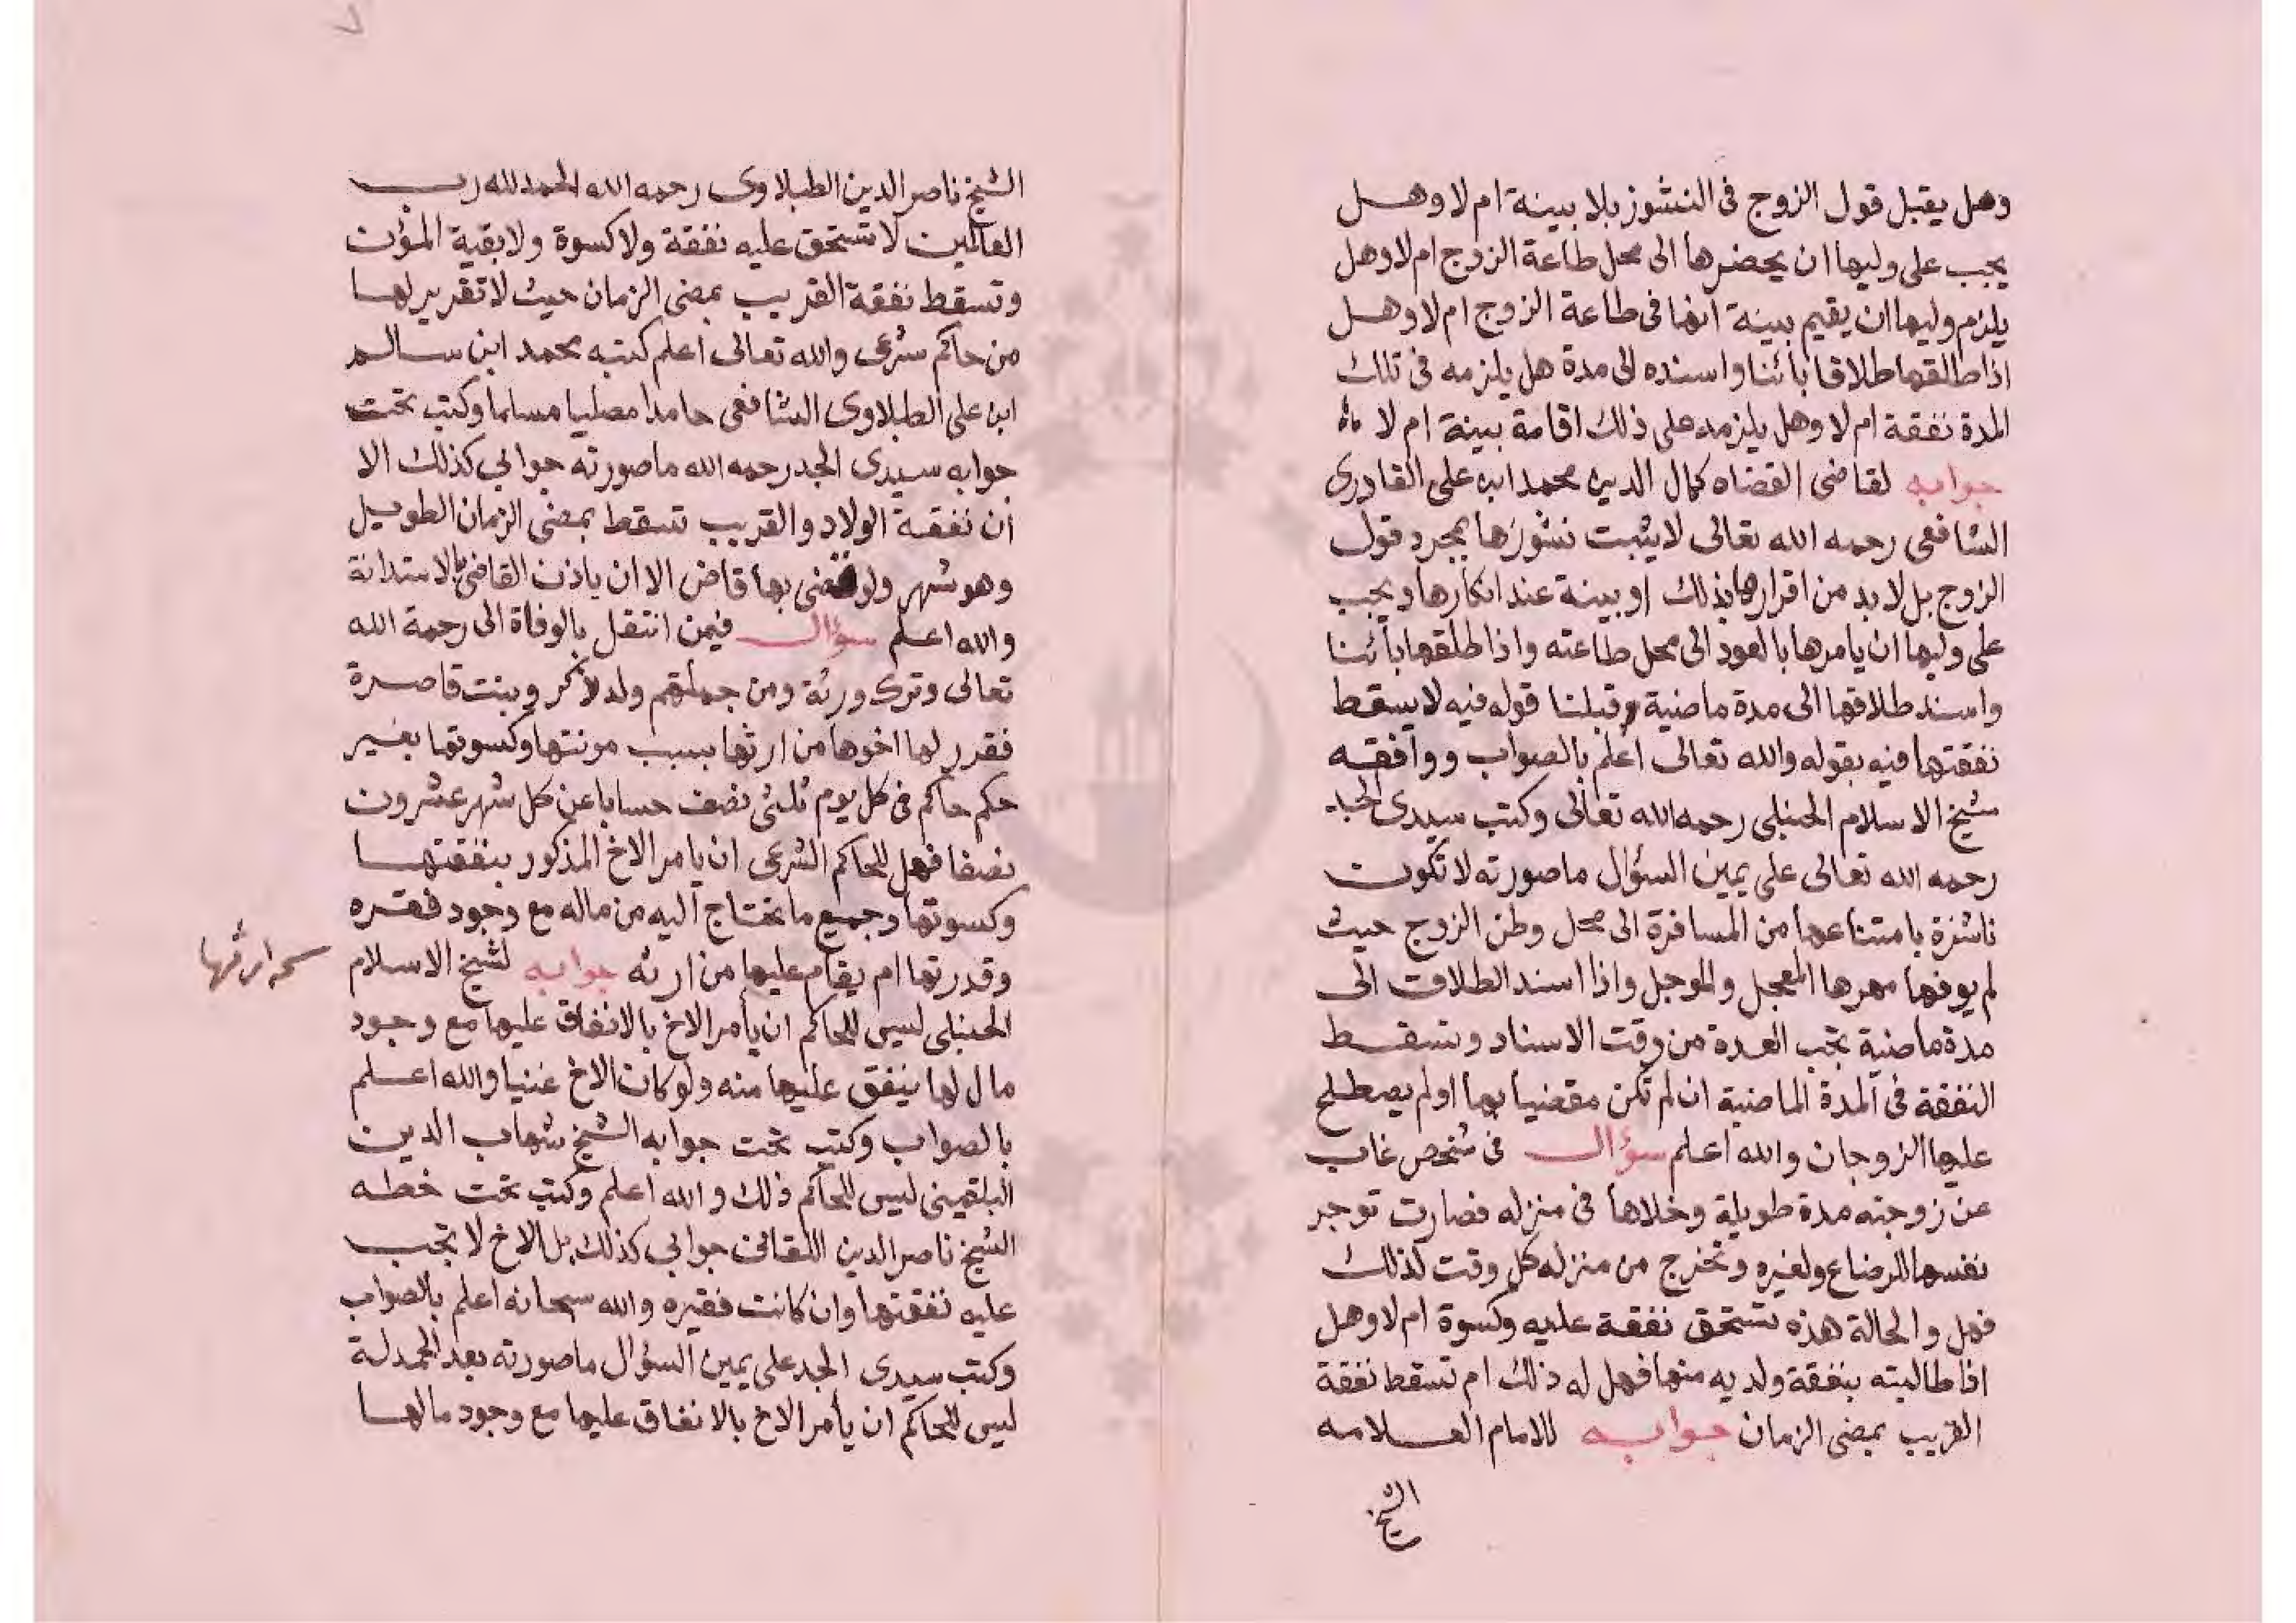 وهل يقبل قول الزوج فى النشوز بلا بينة ام لا وهل
يجب على وليها ان يحضرها الى محل طاعة الزوج ام لا وهل
يلزم وليها ان يقيم بينة انها فى طاعة الزوج ام لا وهل
اذا طلقها طلاقا بائنا واسنده الى مدة هل يلزمه فى تلك
المدة نفقة ام لا وهل يلزمه على ذلك اقامة بينة ام لا
جوابه لقاضى القضاه كمال الدين محمد ابن على القادرى
الشافعى رحمه الله تعالى لا يثبت نشوزها بمجرد قول
الزوج بل لا بد من اقرارها بذلك او بينة عند انكارها ويجب
على وليها ان يامرها بالعود الى محل طاعته واذا طلقها بائنا
واسند طلاقها الى مدة ماضية وقبلنا قوله فيه لا يسقط
نفقتها فيه بقوله والله تعالى اعلم بالصواب ووافقه
شيخ الاسلام الحنبلى رحمه الله تعالى وكتب سيدى الجد
رحمه الله تعالى على يمين السؤال ما صورته لا تكون
ناشزة بامتناعها من المسافرة الى محل وطن الزوج حيث
لم يوفها مهرها المعجل والموجل واذا اسند الطلاق الى
مدة ماضية تجب العدة من وقت الاسناد وتسقط
النفقة فى المدة الماضية ان لم تكن مقضيا بها او لم يصطلح
عليها الزوجان والله اعلم سؤال فى شخص غاب
عن زوجته مدة طويلة وخلاها فى منزله فصارت توجر
نفسها للرضاع ولغيره وتخرج من منزله كل وقت لذلك
فهل والحالة هذه تستحق نفقة عليه وكسوة ام لا وهل
اذا طالبته بنفقة ولديه منها فهل له ذلك ام تسقط نفقة
القريب بمضى الزمان جوابه للامام العلامه
الشيخ
الشيخ ناصر الدين الطبلاوى رحمه الله الحمد لله رب
العالمين لا تستحق عليه نفقة ولا كسوة ولا بقية المؤن
وتسقط نفقة القريب بمضى الزمان حيث لا تقدير لها
من حاكم شرعى والله تعالى اعلم كتبه محمد ابن سالم
ابن على الطبلاوى الشافعى حامدا مصليا مسلما وكتب تحت
جوابه سيدى الجد رحمه الله ما صورته جوابى كذلك الا
ان نفقة الولاد والقريب تسقط بمضى الزمان الطويل
وهو شهر ولو قضى بها قاض الا ان ياذن القاضى بالاستدانة
والله اعلم سؤال فيمن انتقل بالوفاة الى رحمة الله
تعالى وترك ورثة ومن جملتهم ولد ذكر وبنت قاصرة
فقدر لها اخوها من ارثها بسبب مونتها وكسوتها بغير
حكم حاكم فى كل يوم ثلثى نصف حسابا عن كل شهر عشرون
نصفا فهل للحاكم الشرعى ان يامر الاخ المذكور بنفقتها
وكسوتها وجميع ما يحتاج اليه من ماله مع وجود فقره
وقدرتها ام يقام عليها من ارثه جوابه لشيخ الاسلام
ارثها
الحنبلى ليس للحاكم ان يأمر الاخ بالانفاق عليها مع وجود
مال لها ينفق عليها منه ولو كان الاخ غنيا والله اعلم
بالصواب وكتب تحت جوابه الشيخ شهاب الدين
البلقينى ليس للحاكم ذلك والله اعلم وكتب تحت خطه
الشيخ ناصر الدين اللقانى جوابى كذلك بل الاخ لا تجب
عليه نفقتها وان كانت فقيره والله سبحانه اعلم بالصواب
وكتب سيدى الجد على يمين السؤال ما صورته بعد الحمدلة
ليس للحاكم ان يأمر الاخ بالانفاق عليها مع وجود مالها